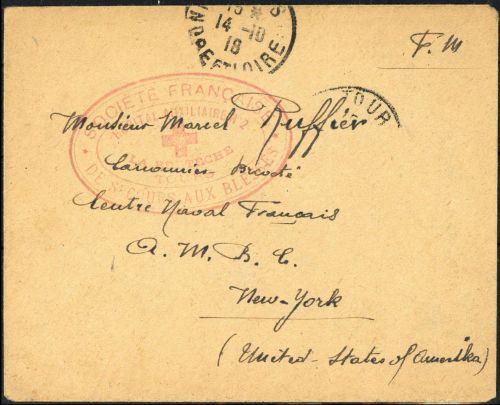 15 * 
14-10
18
INDRE ET LOIRE
F. M
TOUR
SOCIÉTÉ FRANÇAISE
AUXILIAIRE
DE SECOURS AUX BLESSÉS
Monsieur Marcel Ruffier
Canonnier Breveté
Centre Naval Français
A. M. B. C.
New-York
(United-States of Amerika)